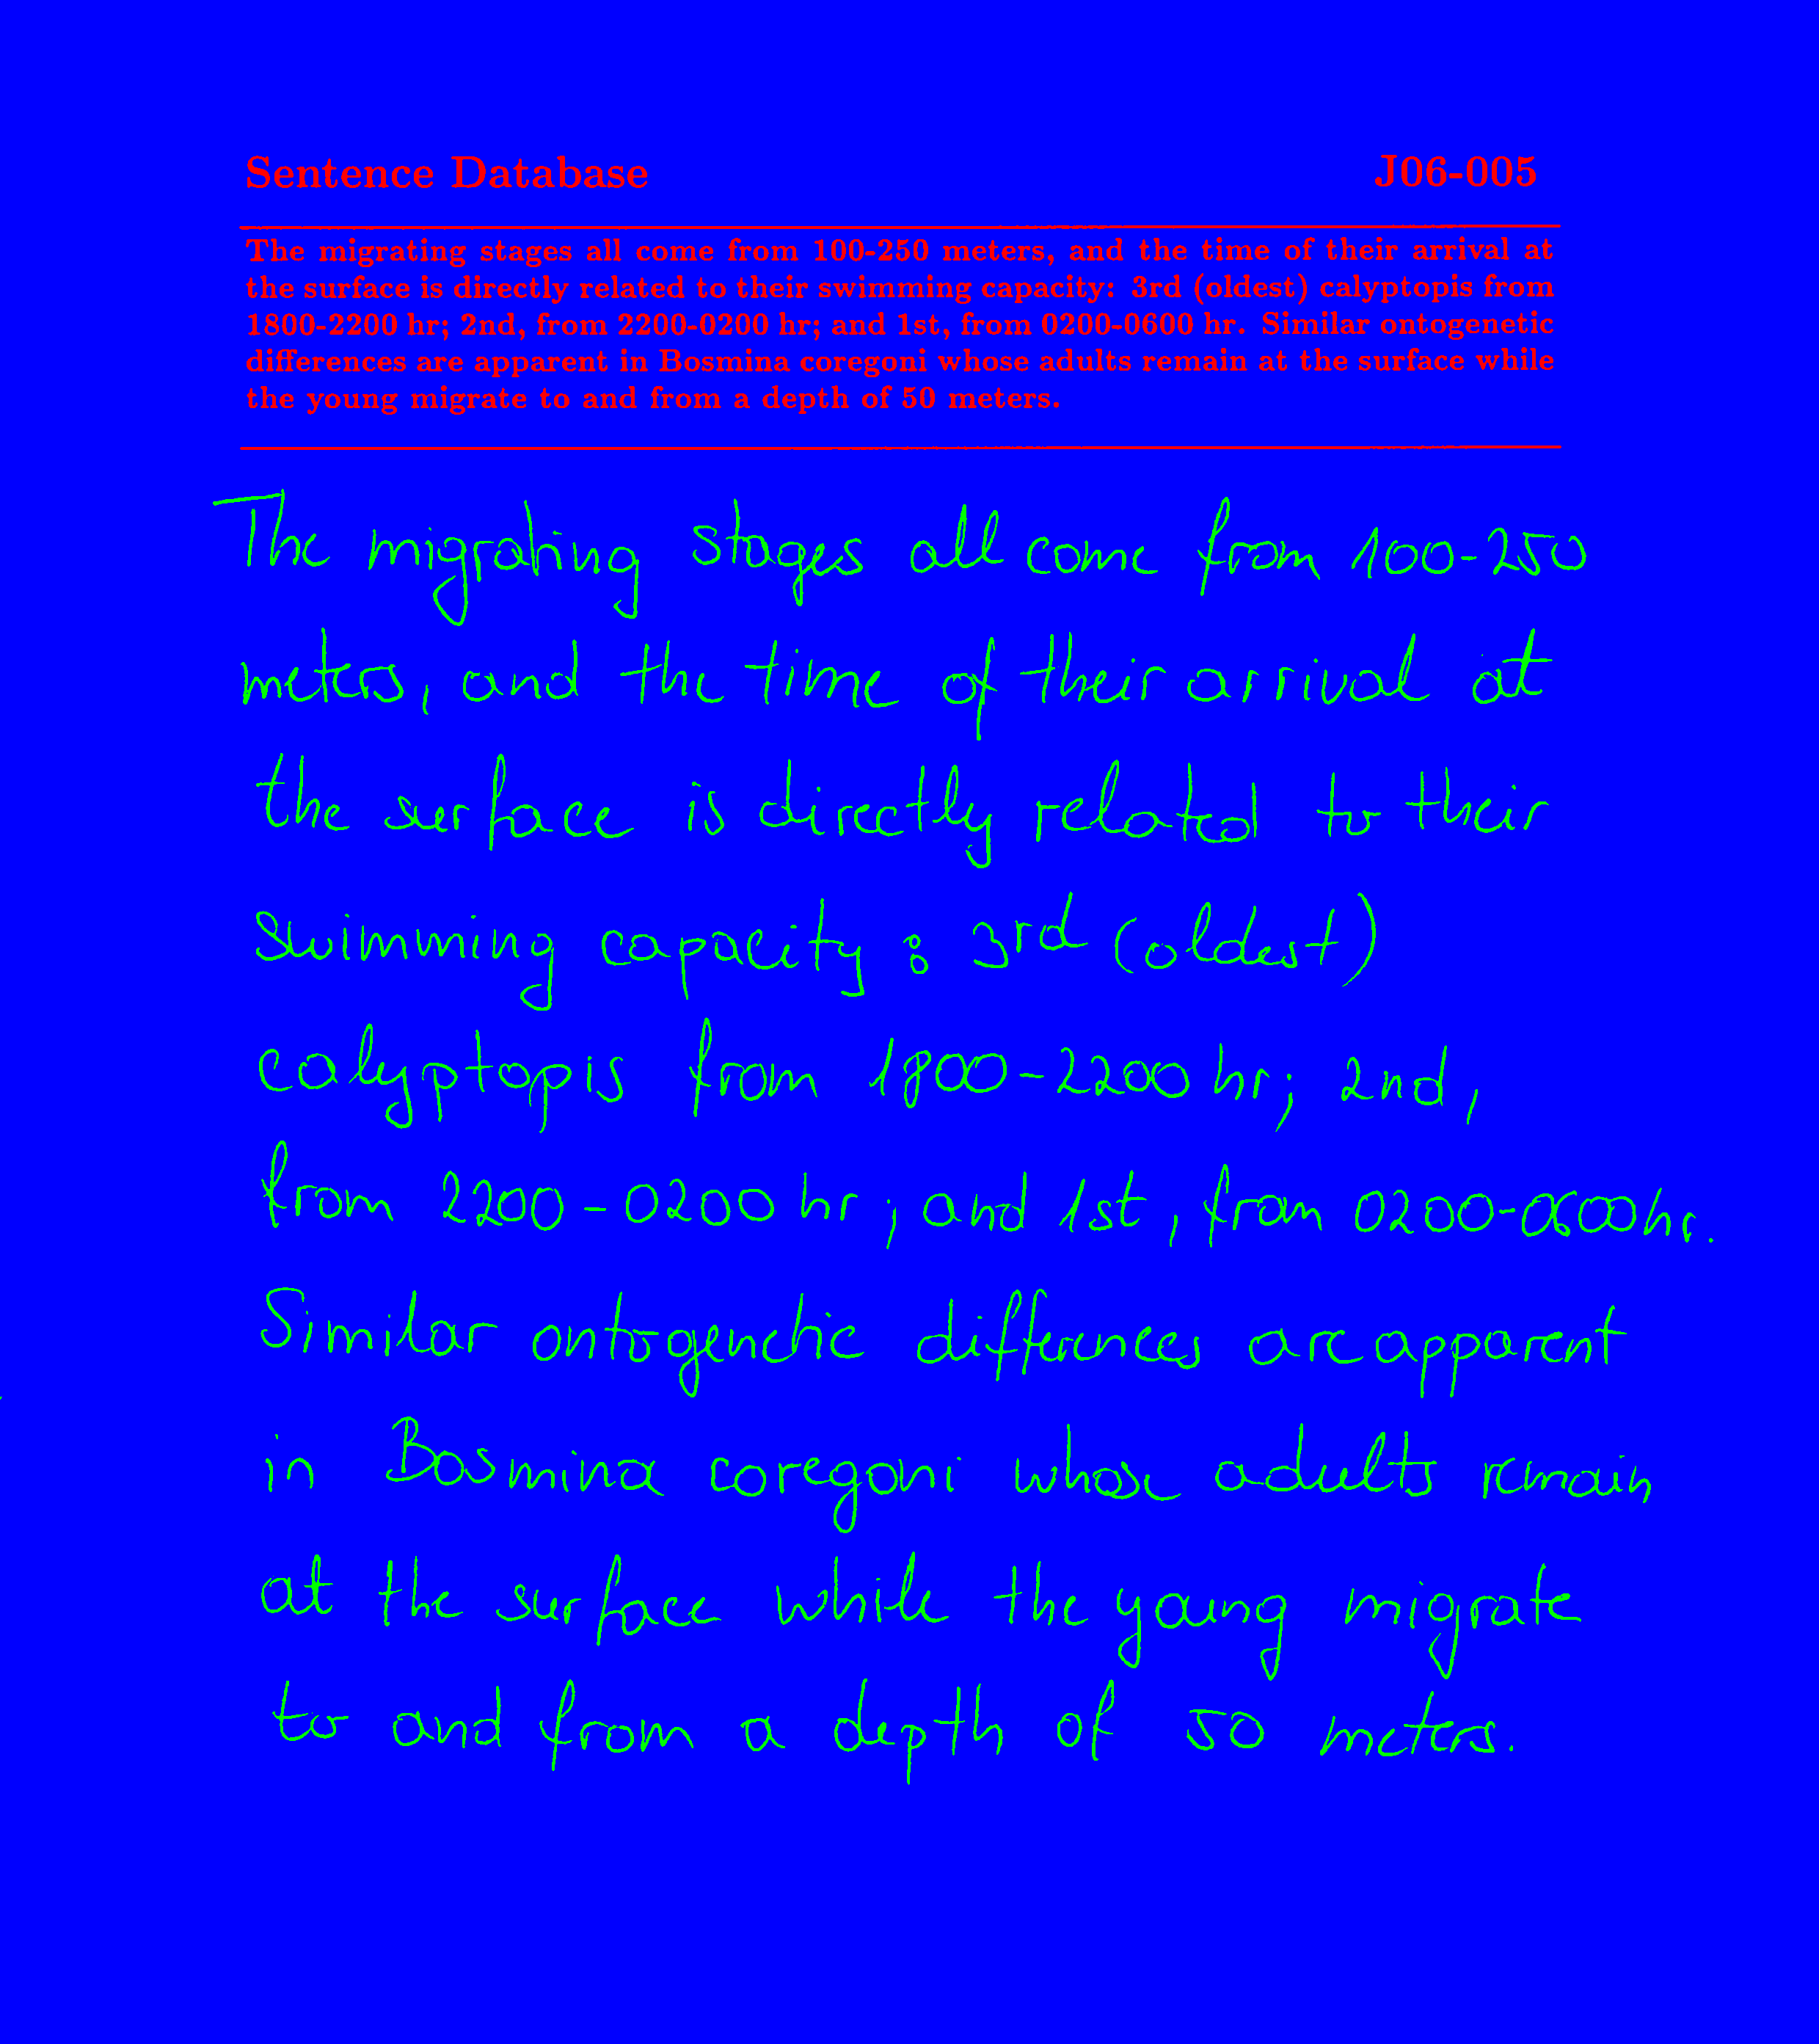 Sentence Database J06-005
The migrating stages all come from 100-250 meters, and the time of their arrival at
the surface is directly related to their swimming capacity: 3rd (oldest) calyptopis from
1800-2200 hr; 2nd, from 2200-0200 hr; and 1st, from 0200-0600 hr. Similar ontogenetic
differences are apparent in Bosmina coregoni whose adults remain at the surface while
the young migrate to and from a depth of 50 meters.
The migrating stages all come from 100-250
meters, and the time of their arrival at
the surface is directly related to their
swimming capacity : 3rd (oldest)
calyptopis from 1800-2200 hr; 2nd,
from 2200-0200 hr; and 1st, from 0200-0600 hr.
Similar ontogenetic differences are apparent
in Bosmina coregoni whose adults remain
at the surface while the young migrate
to and from a depth of 50 meters.